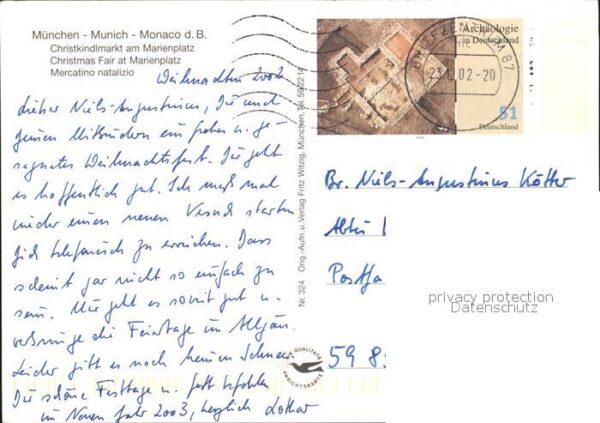 München - Munich - Monaco d. B.
Christkindlmarkt am Marienplatz
Christmas Fair at Marienplatz
Mercatino natalizio
Weihnachten 2002
Lieber Niels-Augustinus, Dir und
Deinen Mitbrüdern ein frohes u. ge-
segnetes Weihnachtsfest. Dir geht
es hoffentlich gut. Ich muß mal
wieder einen neuen Versuch starten
Dich telefonisch zu erreichen. Dass
scheint gar nicht so einfach zu
sein. Mir geht es soweit gut u.
verbringe die Feiertage im Allgäu.
Leider gibt es noch keinen Schnee.
Dir schöne Festtage u.
im Neuen Jahr 2003, herzlich Lothar
Nr. 324 Orig.-Aufn. u. Verlag Fritz Witzig, München, Tel. 592214
DIE QUALITÄTS
ANSICHTSKARTE
Archäologie
in Deutschland
51
Deutschland
BRIEFZENTRUM 87
23.12.02-20
Br. Niels-Augustinus Kötter
Abtei
Postfa
59 8
privacy protection
Datenschutz